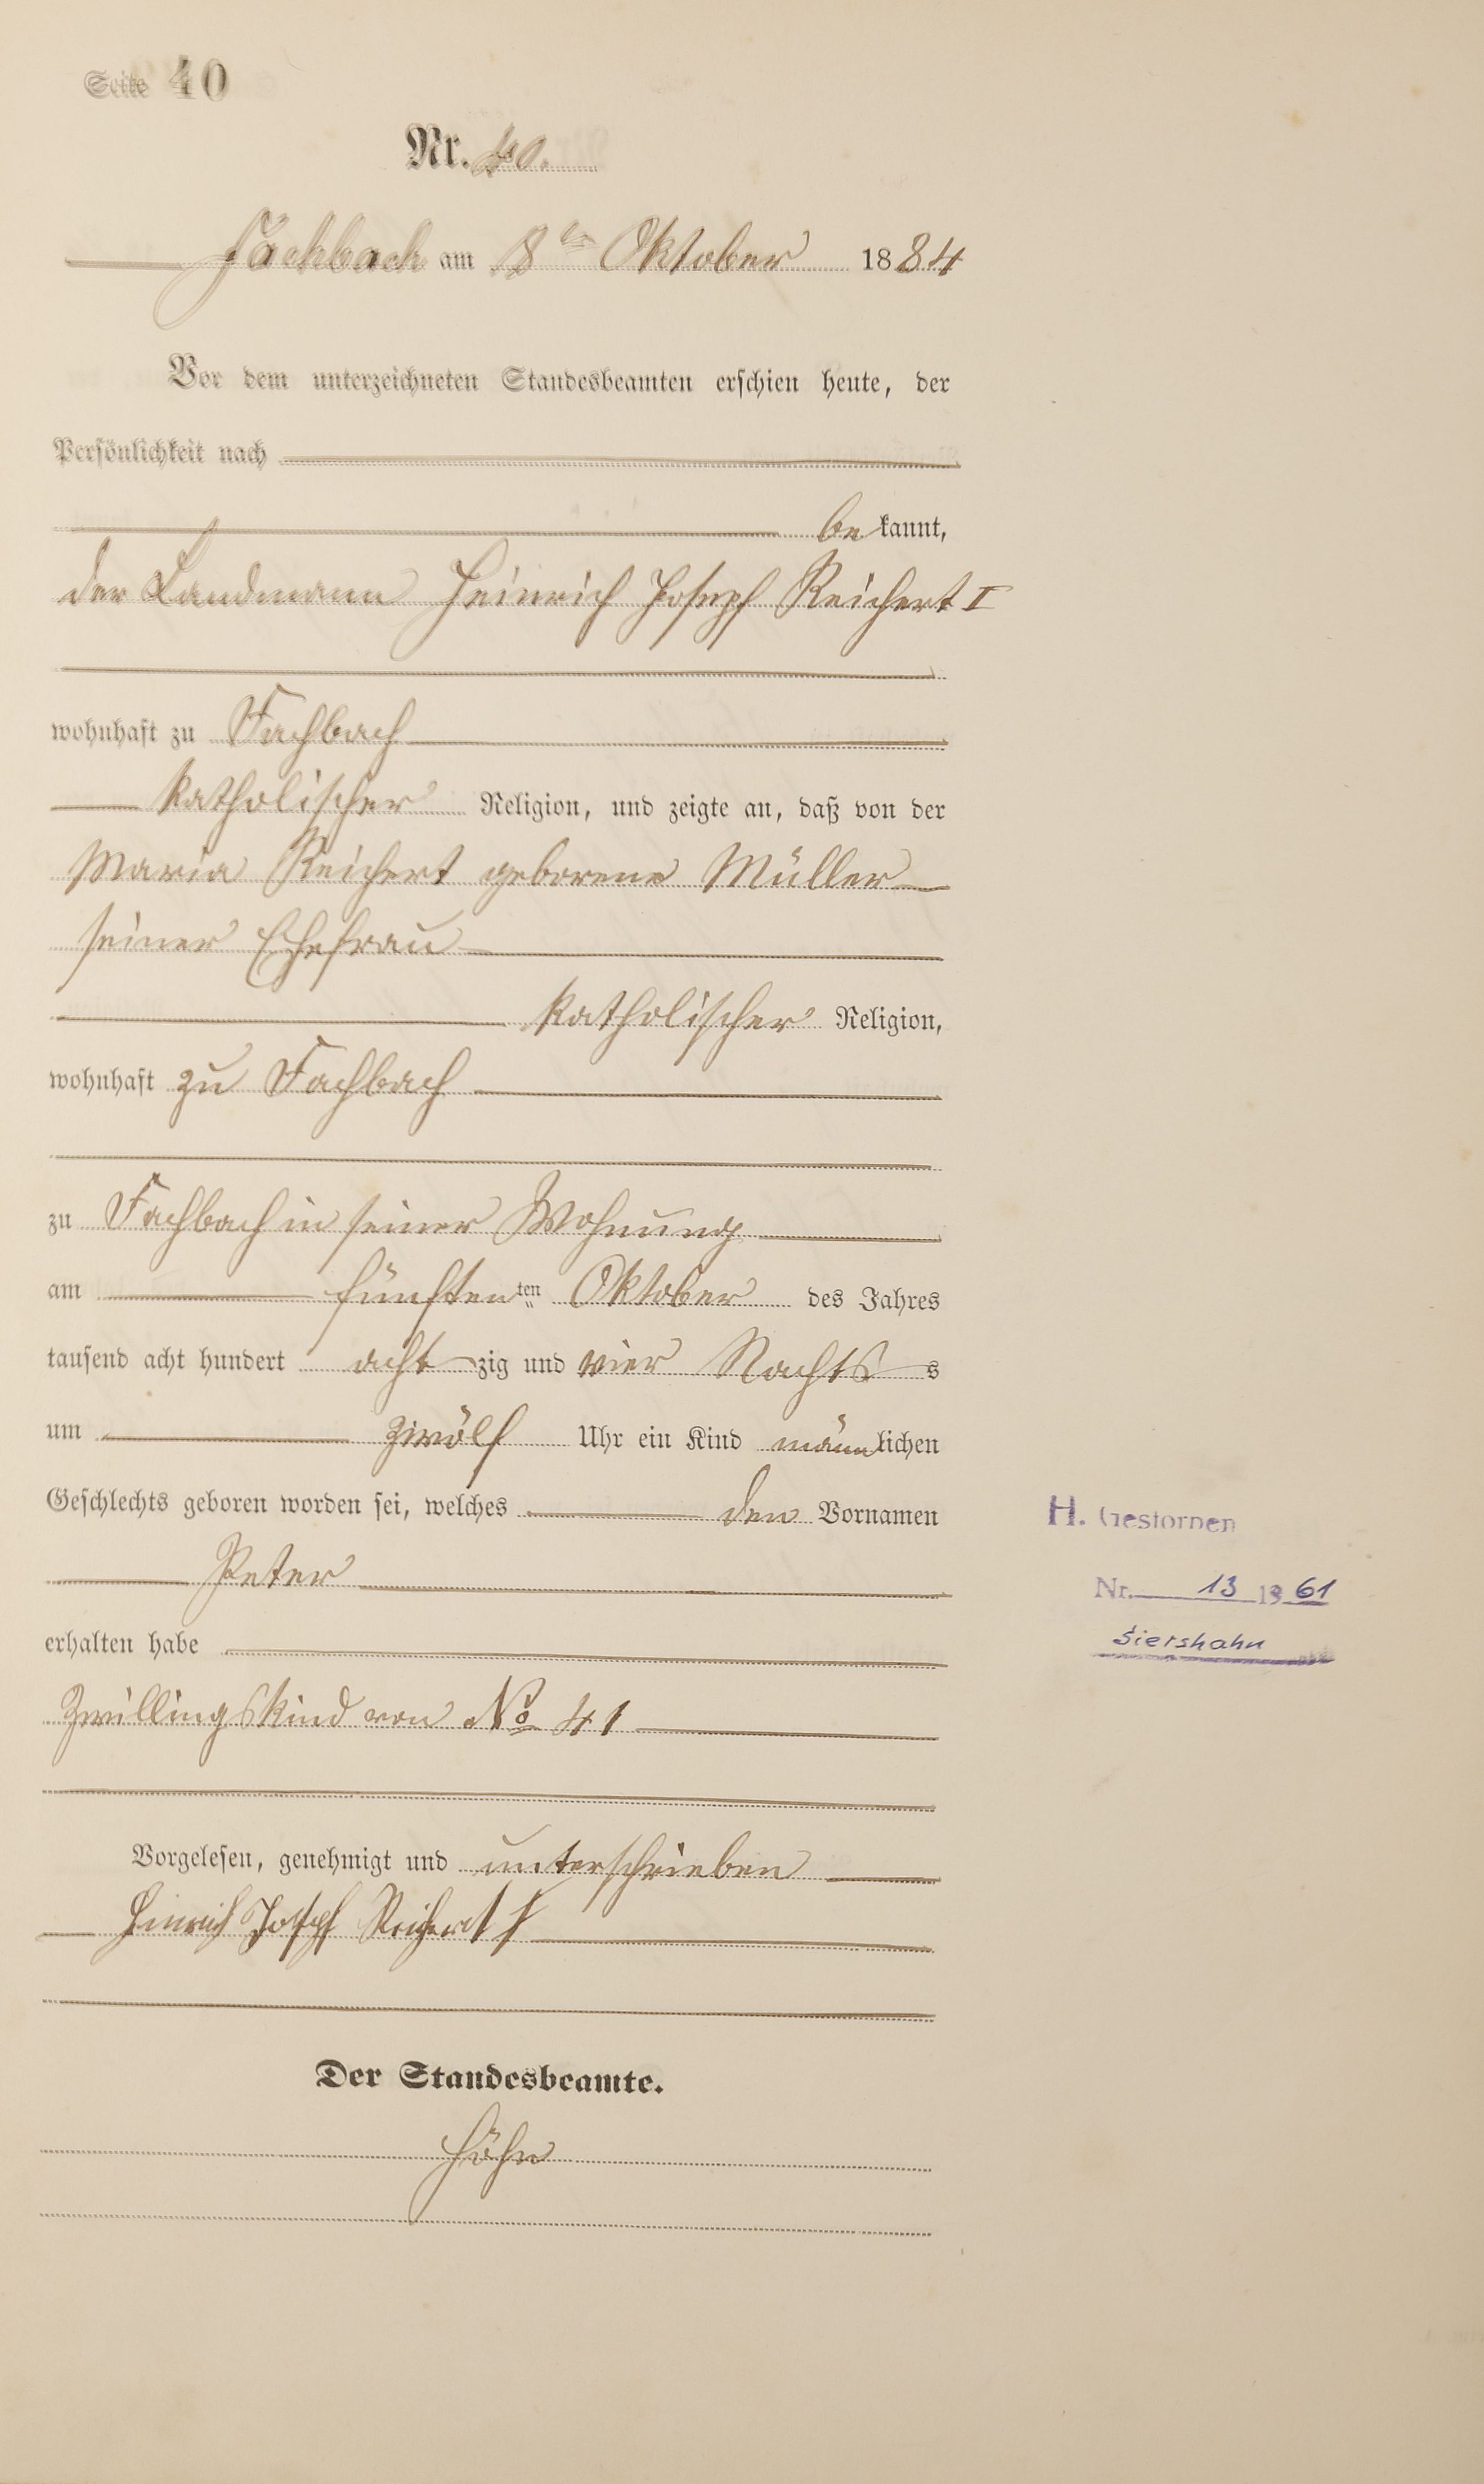 Seite 40
Nr. 40.
Fachbach am 8ten Oktober 1884
Vor dem unterzeichneten Standesbeamten erschien heute, der
Persönlichkeit nach
bekannt,
der Landmann Heinrich Joseph Reichert I
wohnhaft zu Fachbach
katholischer Religion, und zeigte an, daß von der
Maria Reichert geborene Müller
seiner Ehefrau
katholischer Religion,
wohnhaft zu Fachbach
zu Fachbach in seiner Wohnung
am fünften ten Oktober des Jahres
tausend acht hundert acht zig und vier Nachts s
um zwölf Uhr ein Kind männlichen
Geschlechts geboren worden sei, welches den Vornamen
H. Gestorben
Peter
Nr. 13 1961
erhalten habe
Siershahn
Zwillingskind von No 41
Vorgelesen, genehmigt und unterschrieben
Heinrich Joseph Reichert I
Der Standesbeamte.
Höhn